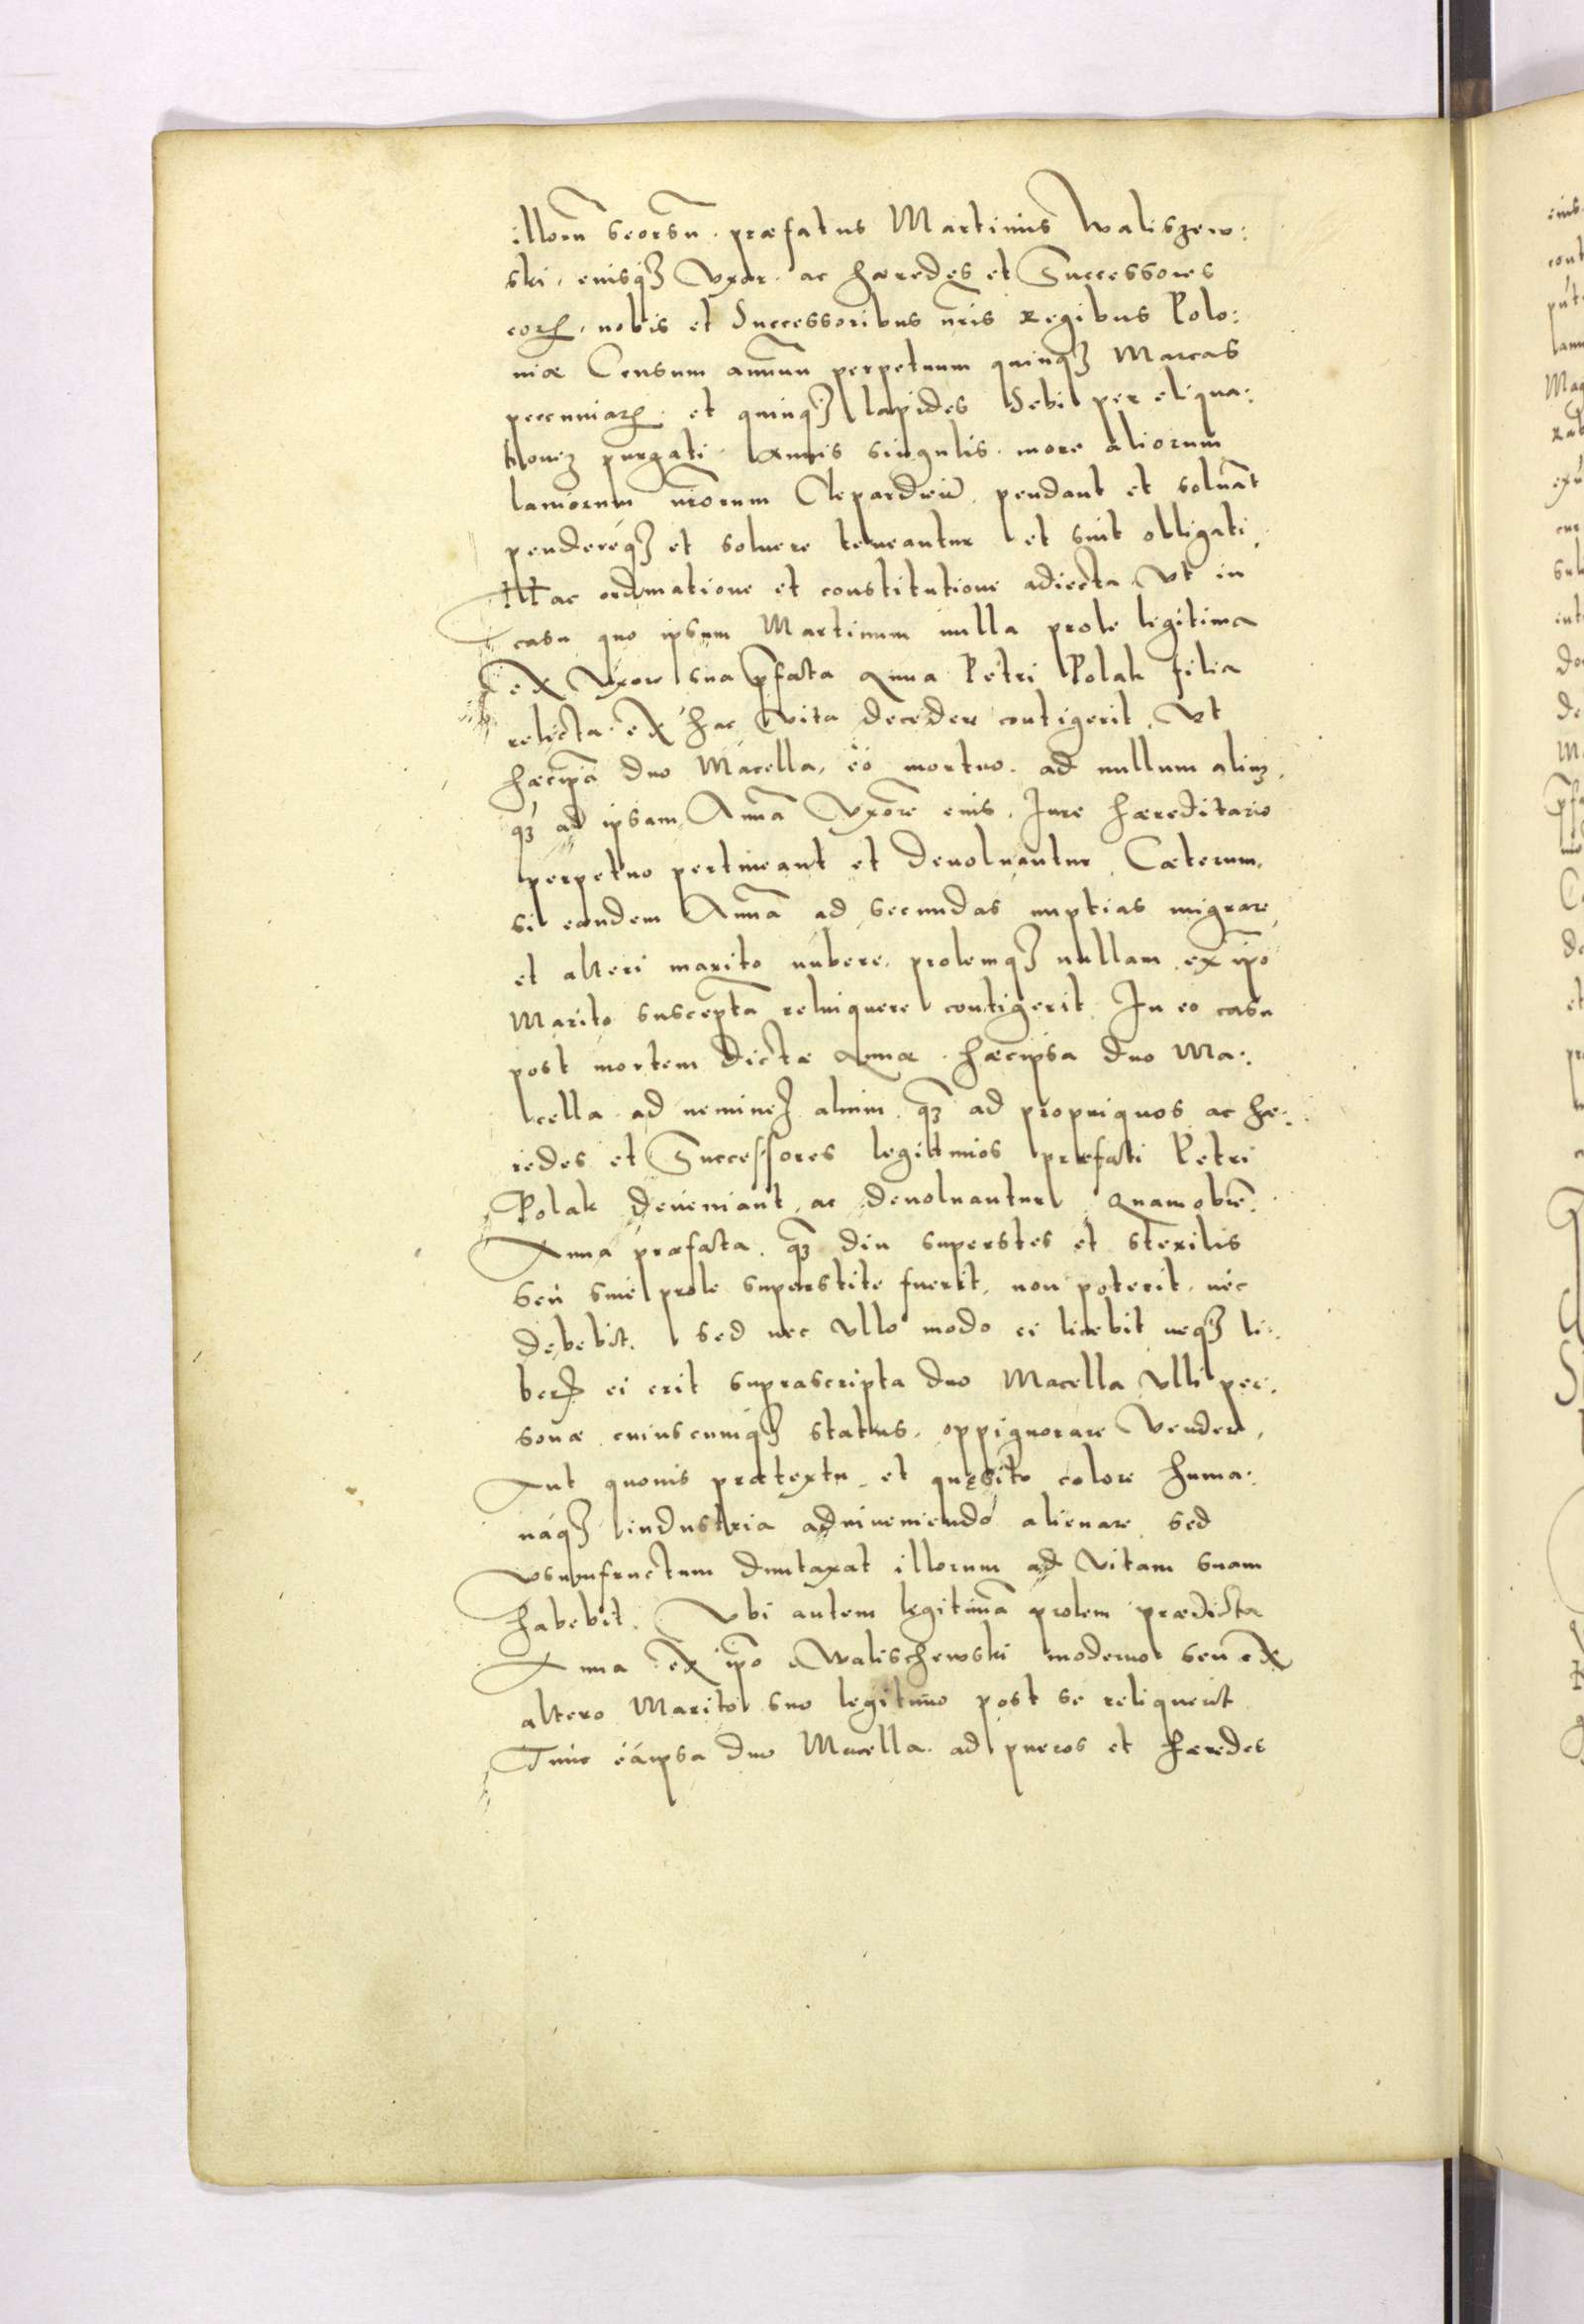 illorū seorsū. præfatus Martinus Waliszew:
ski, eiusqȝ Vxor. ac hæredes et Successores
eorꝝ, nobis et Successoribus nr̄is Regibus Polo:
niæ Censum annuū perpetuum quinqȝ Marcas
peccuniarꝝ. et quinqȝ lapides Sebi per eliqua:
tionez purgati. Annis singulis. more aliorum
laniorum nr̄orum Clepardieñ. pendant et soluāt
penderéqȝ et soluere teneantur et sint obligati.
Hac ordinatione et constitutione adiecta. Vt in
casu quo ipsum Martinum nulla prole legitima
ex Vxore sua p̄fata Anna Petri Polak filia
relicta. ex hac Vita decedere contigerit. Vt
hæcip̄a duo Macella, eo mortuo. ad nullum aliuȝ.
qȝ ad ipsam Annā Vxorē eius. Iure hæreditario
perpetuo pertineant et deuoluantur. Cæterum,
si eandem Annā ad secundas nuptias migrare,
et alteri marito nubere. prolemqȝ nullam ex ip̄o
Marito susceptā relinquere contigerit. In eo casu
post mortem dictæ Annæ. hæcipsa duo Ma:
cella ad nemineȝ alium. qȝ ad propinquos ac hæ:
redes et Successores legitimos præfati Petri
Polak deueniant, ac deuoluantur. Quamobrē.
Anna præfata. qȝ diu superstes et sterilis
seu sine prole superstite fuerit, non poterit. nec
debebit. sed nec Vllo modo ei licebit neqȝ li:
berȝ ei erit suprascripta duo Macella Vlli per:
sonæ cuiuscunqȝ status. oppignorare Vendere,
Aut quouis prætextu. et quęsito colore huma:
náqȝ industria adinueniendo alienare. sed
Vsumfructum duntaxat illorum ad Vitam suam
habebit. Vbi autem legitimā prolem prædicta
Anna ex ip̄o Walischewski moderno seu ex
altero Marito suo legitimo post se reliquerit
Tunc eáipsa duo Macella. ad pueros et hæredes